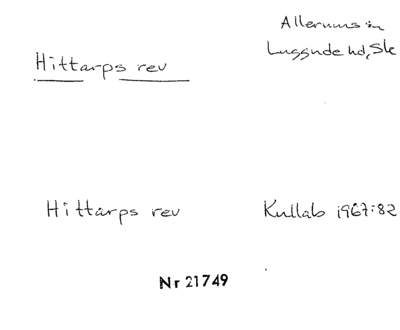 Allerums sn
Luggude hd, Sk
Hittarps rev
Hittarps rev
Kullab 1967:82
Nr 21749